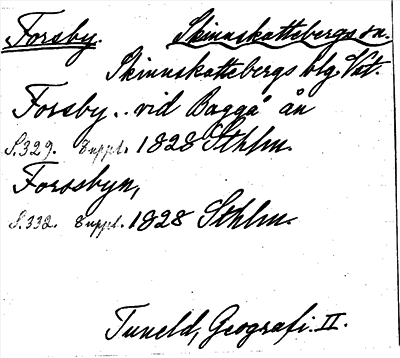 Forsby. Skinnskattebergs sn.
Skinnskattebergs blg. Vst.
Forsby.. vid Baggå ån
S.329. Suppl. 1828 Sthlm.
Forssbyn,
S.332. Suppl. 1828 Sthlm.
Tuneld, Geografi. II.